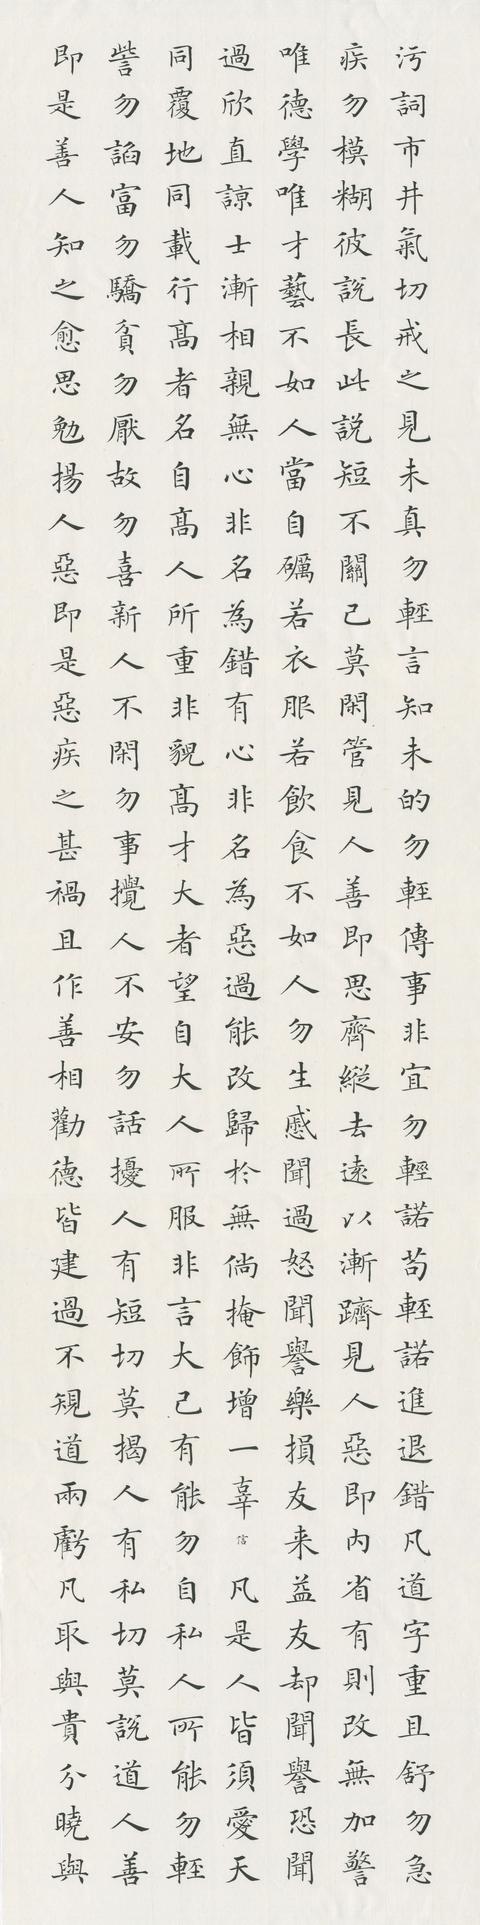 污詞市井氣切戒之見未真勿輕言知未的勿輕傳事非宜勿輕諾苟輕諾進退錯凡道字重且舒勿急
疾勿模糊彼說長此說短不關己莫閑管見人善即思齊縱去遠以漸躋見人惡即內省有則改無加警
唯德學唯才藝不如人當自礪若衣服若飲食不如人勿生慼聞過怒聞譽樂損友来益友却聞譽恐聞
過欣直諒士漸相親無心非名為錯有心非名為惡過能改歸於無倘掩飾增一辜信凡是人皆須愛天
同覆地同載行髙者名自髙人所重非貌髙才大者望自大人所服非言大己有能勿自私人所能勿輕
訾勿諂富勿驕貧勿厭故勿喜新人不閑勿事攪人不安勿話擾人有短切莫揭人有私切莫說道人善
即是善人知之愈思勉揚人惡即是惡疾之甚禍且作善相勸德皆建過不規道兩虧凡取與貴分曉與